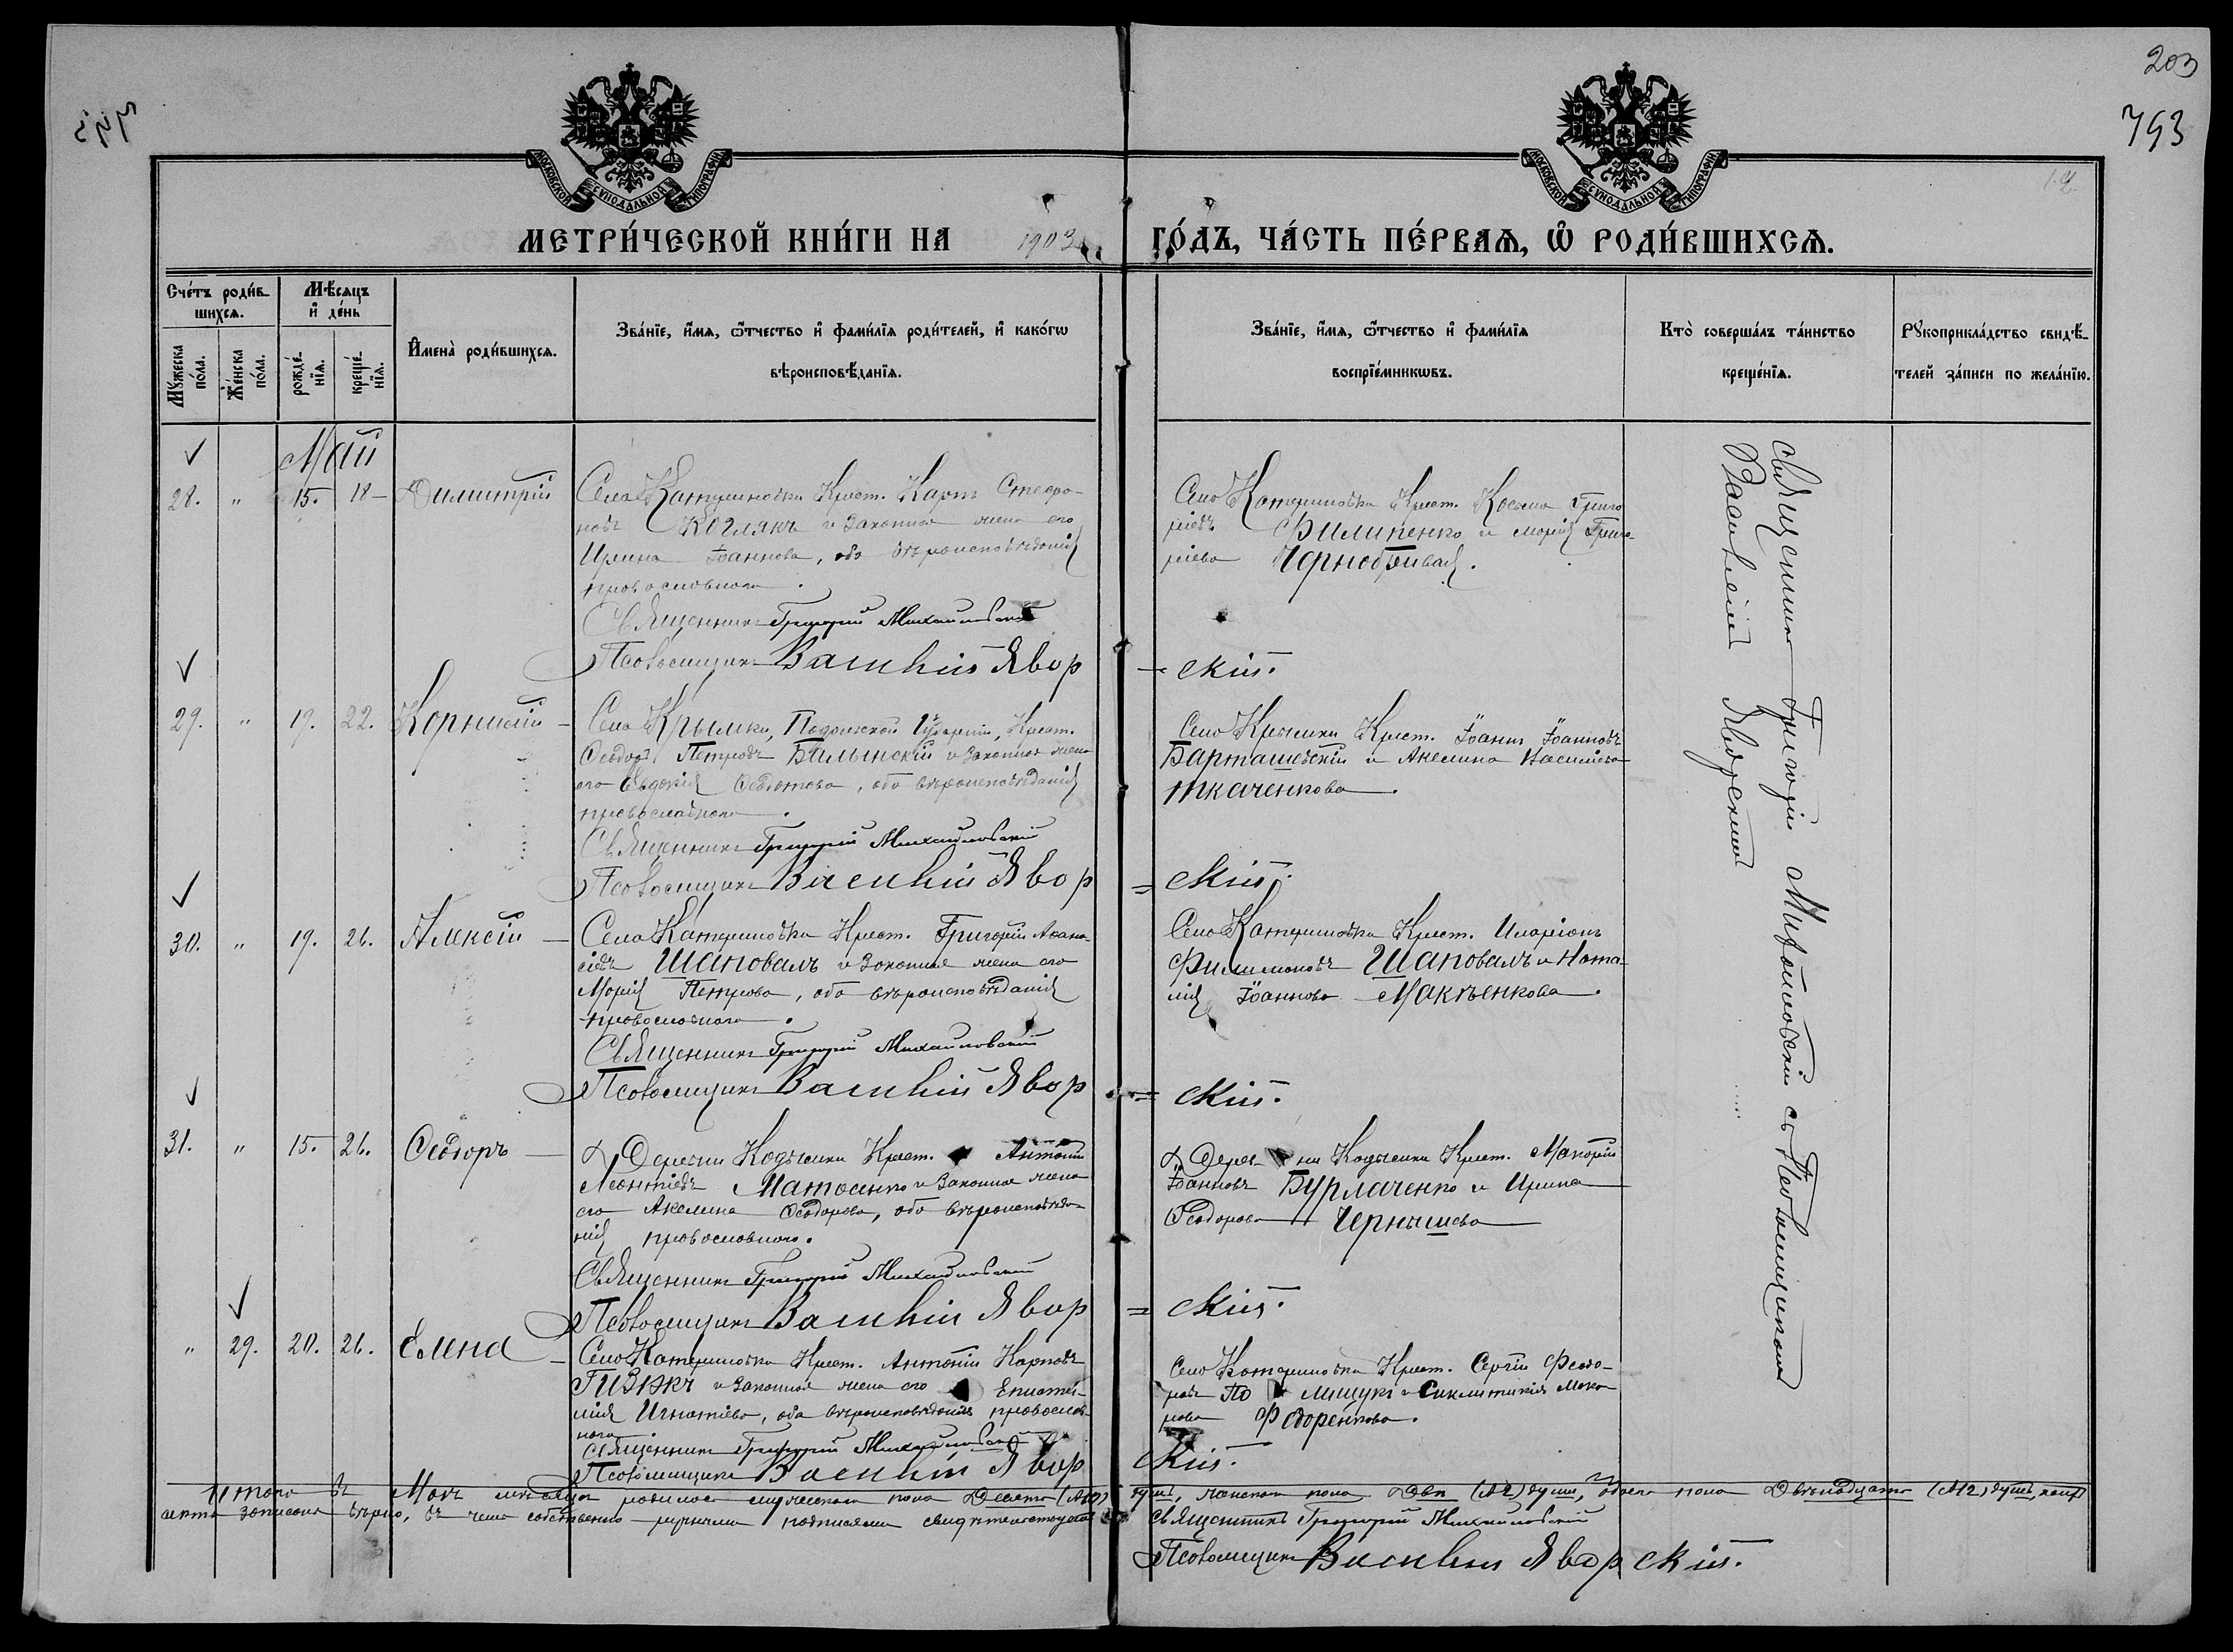 203
793
МОСКОВСКОЙ СѴНОДАЛЬНОЙ ТИПОГРАФІИ
МОСКОВСКОЙ СѴНОДАЛЬНОЙ ТИПОГРАФІИ
МЕТРИ́ЧЕСКОЙ КНИ́ГИ НА 1903 ГО́ДЪ, ЧА́СТЬ ПЕ́РВАѦ, Ѡ҆ РОДИ́ВШИХСѦ.
Сче́тъ роди́в-
шихсѧ.
Мѣ́сѧцъ
и҆ де́нь
Мꙋ́жеска
по́ла.
Же́нска
по́ла.
рожде́-
нїѧ.
креще́-
нїѧ.
И҆мена̀ роди́вшихсѧ.
Зва́нїе, и҆́мѧ, ѻ҆́тчество и҆ фами́лїѧ роди́телей, и҆ како́гѡ
вѣроисповѣ́данїѧ.
Зва́нїе, и҆́мѧ, ѻ҆́тчество и҆ фами́лїѧ
воспрїе́мникѡвъ.
Кто̀ соверша́лъ та́инство
креще́нїѧ.
Рꙋкоприкла́дство свидѣ́-
телей за́писи по жела́нїю.
Май
28. " 15. 18 – Димитрій
Села Катериновки Крест. Карпъ Стефа-
новъ Коглякъ и законная жена его
Ирина Іоаннова, оба вѣроисповѣданія
православнаго.
Священникъ Григорій Михайловскій
Псаломщикъ Василій Явор-скій.
Села Катериновки Крест. Косма Григо
ріевъ Филипенко и Марія Григо
ріева Чернобривая.
29. " 19. 22. Корнилій –
Села Крымки, Подольской Губерніи, Крест.
Ѳеодоръ Петровъ Билынскій и законная жена
его Евдокія Ѳедотова, оба вѣроисповѣданія
православнаго.
Священникъ Григорій Михайловскій
Псаломщикъ Василій Явор=скій.
Села Крымки Крест. Іоаннъ Іоанновъ
Барташевскій и Акелина Василіева
Ткаченкова.
30. " 19. 26. Алексій –
Села Катериновки Крест. Григорій Аѳана-
сіевъ Шаповалъ и законная жена его
Марія Петрова, оба вѣроисповѣданія
православнаго.
Священникъ Григорій Михайловскій
Псаломщикъ Василій Явор=скій.
Села Катериновки Крест. Иларіонъ
Филимоновъ Шаповалъ и Ната-
лія Іоаннова Макѣенкова.
31. " 15. 26. Ѳеодоръ –
Деревни Кодымки Крест. Антоній
Леонтіевъ Матосинко и законная жена
его Акелина Ѳеодорова, оба вѣроисповѣда-
нія православнаго.
Священникъ Григорій Михайловскій
Псаломщикъ Василій Явор=скій.
Деревни Кодымки Крест. Макарій
Іоанновъ Бурлаченко и Ирина
Ѳеодорова Чернышева
" 29. 20. 26. Елена –
Села Катериновки Крест. Антоній Карповъ
Гизжъ и законная жена его Епистим-
нія Игнатіева, оба вѣроисповѣданія православ-
наго.
Священникъ Григорій Михайловскій
Псаломщикъ Василій Яворскій.
Села Катериновки Крест. Сергій Феодо-
ровъ Полищукъ и Синклитикія Мака
рова Федоренкова.
Священникъ Григорій Михайловскій съ Псаломщикомъ
Василіемъ Яворскимъ
Итого въ Маѣ мѣсяцѣ родилось мужескаго пола Десять (10) душъ, женскаго пола Двѣ (2) души, обоего пола Двѣнадцать (12) душъ,
акты записаны вѣрно, въ чемъ собственно-ручными подписями свидѣтельствуемъ
Священникъ Григорій Михайловскій
Псаломщикъ Василій Яворскій.